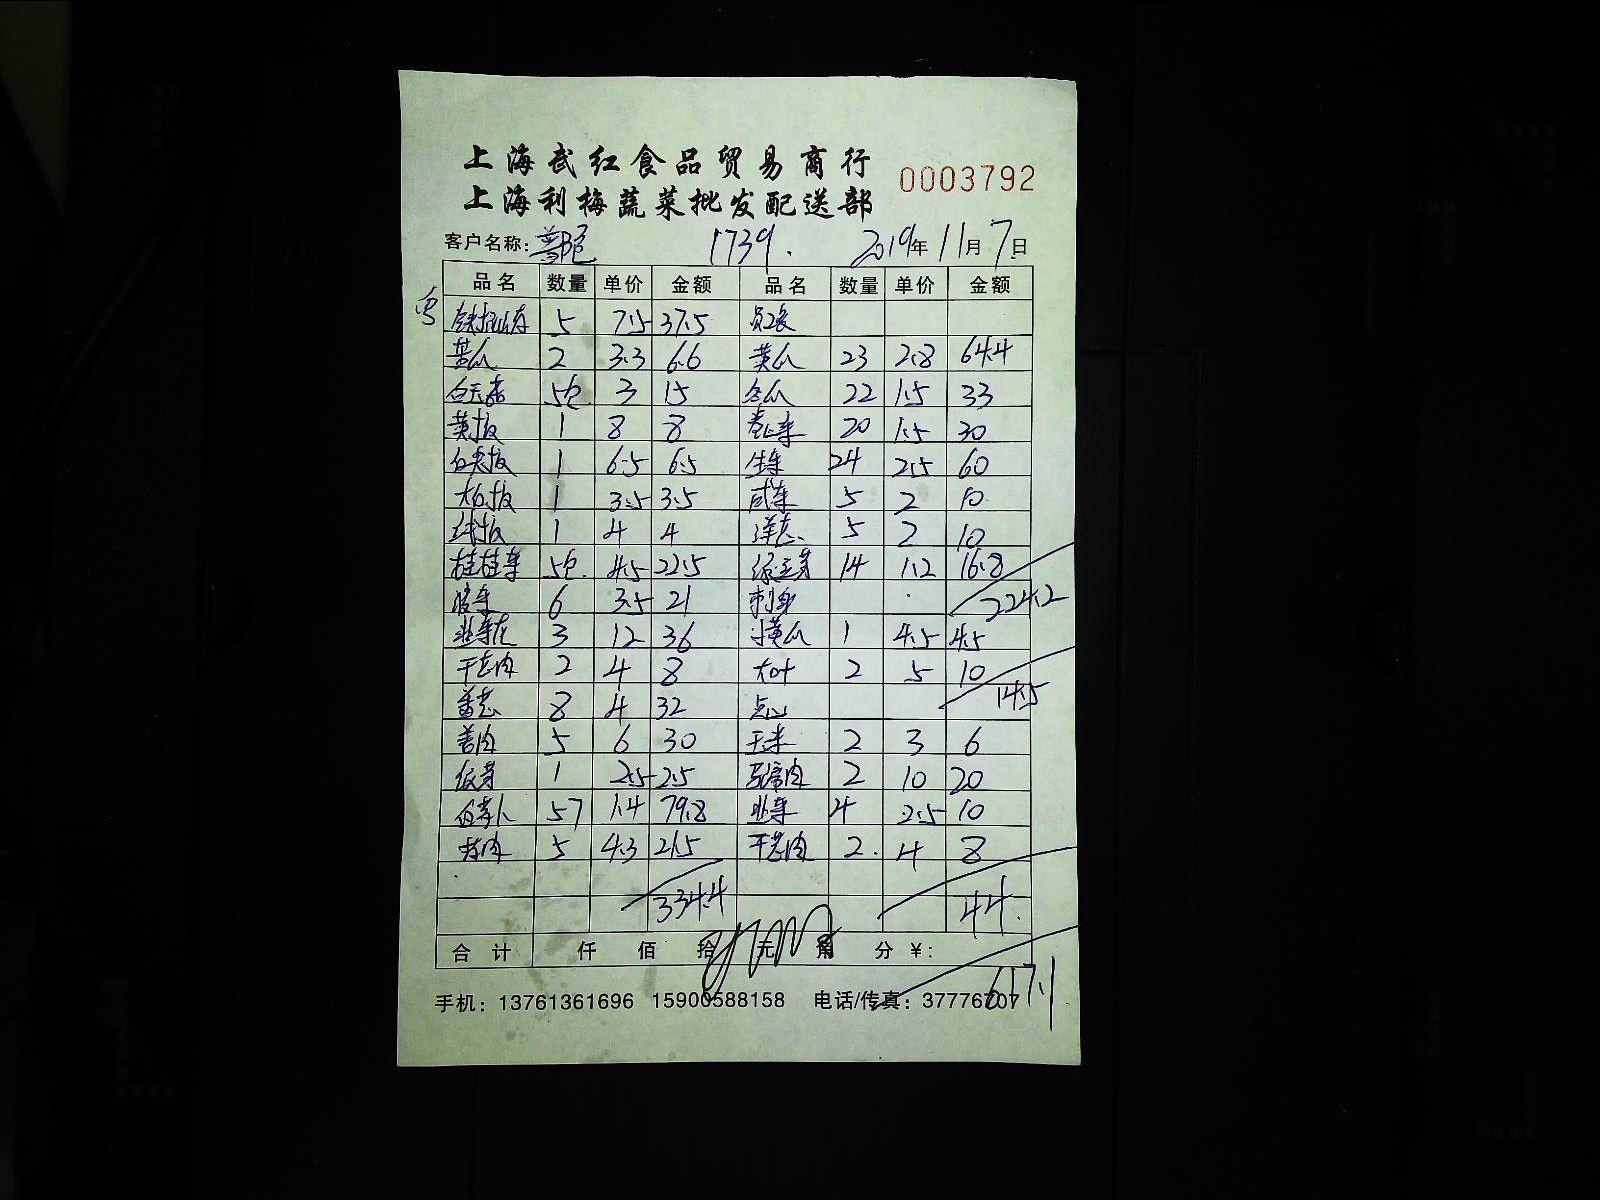 上海武红食品贸易商行
上海利梅蔬菜批发配送部
0003792
客户名称: 1739. 2019年11月7日
品名 数量 单价 金额 品名 数量 单价 金额
5 7.5 37.5
2 3.3 6.6 黄瓜 23 2.8 64.4
5包 3 15 冬瓜 22 1.5 33
黄椒 1 8 8 20 1.5 30
1 6.5 6.5 生菜 24 2.5 60
1 3.5 3.5 咸菜 5 2 10
1 4 4 洋葱 5 2 10
5包. 4.5 22.5 绿豆芽 14 1.2 16.8
6 3.5 21 刺身
224.2
3 12 36 小黄瓜 1 4.5 4.5
2 4 8 大叶 2 5 10
14.5
8 4 32 点心
5 6 30 玉米 2 3 6
1 2.5 2.5 马蹄肉 2 10 20
57 1.4 79.8 韭菜 4 2.5 10
5 4.3 21.5 2. 4 8
334.4 44.
合计 仟 佰 拾 元 角 分 ¥:
617.1
手机: 13761361696 15900588158 电话/传真: 37776707